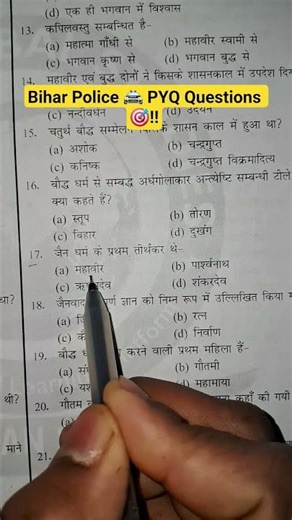 (d) एक ही भगवान में विश्वास
13. कपिलवस्तु सम्बन्धित है-
(a) महात्मा गाँधी से (b) महावीर स्वामी से
(c) भगवान कृष्ण से (d) भगवान बुद्ध से
14. महावीर एवं बुद्ध दोनों ने किसके शासनकाल में उपदेश
Bihar Police 🚔 PYQ Questions
🎯!!
(c) नन्दीवर्धन (d) उदयन
15. चतुर्थ बौद्ध सम्मेलन शासन काल में हुआ था?
(a) अशोक (b) चन्द्रगुप्त
(c) कनिष्क (d) चन्द्रगुप्त विक्रमादित्य
16. बौद्ध धर्म से सम्बद्ध अर्धगोलाकार अन्त्येष्टि सम्बन्धी टीले
क्या कहते हैं?
(a) स्तूप (b) तोरण
(c) विहार (d) दुखंग
17. जैन धर्म के प्रथम तीर्थंकर थे-
(a) महावीर (b) पार्श्वनाथ
(c) (d) शंकरदेव
था? 18. जैनवाद ज्ञान को निम्न रूप में उल्लिखित किया
(a) (b) रत्न
(c) (d) निर्वाण
19. बौद्ध करने वाली प्रथम महिला हैं-
(a) (b) गौतमी
(c) (d) महामाया
थी? 20. गौतम कहाँ की गयी
(a)
माने 21.